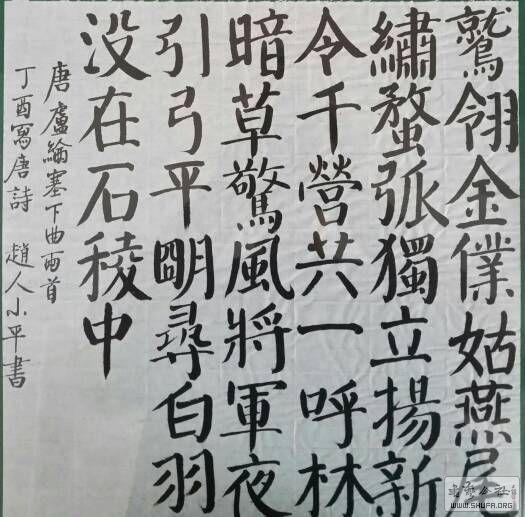 鷲翎金僕姑燕尾
繡蝥弧獨立揚新
令千營共一呼林
暗草驚風將軍夜
引弓平朙尋白羽
没在石稜中
唐盧綸塞下曲两首
丁酉寫唐詩 趙人小平書
WWW.SHUFA.ORG